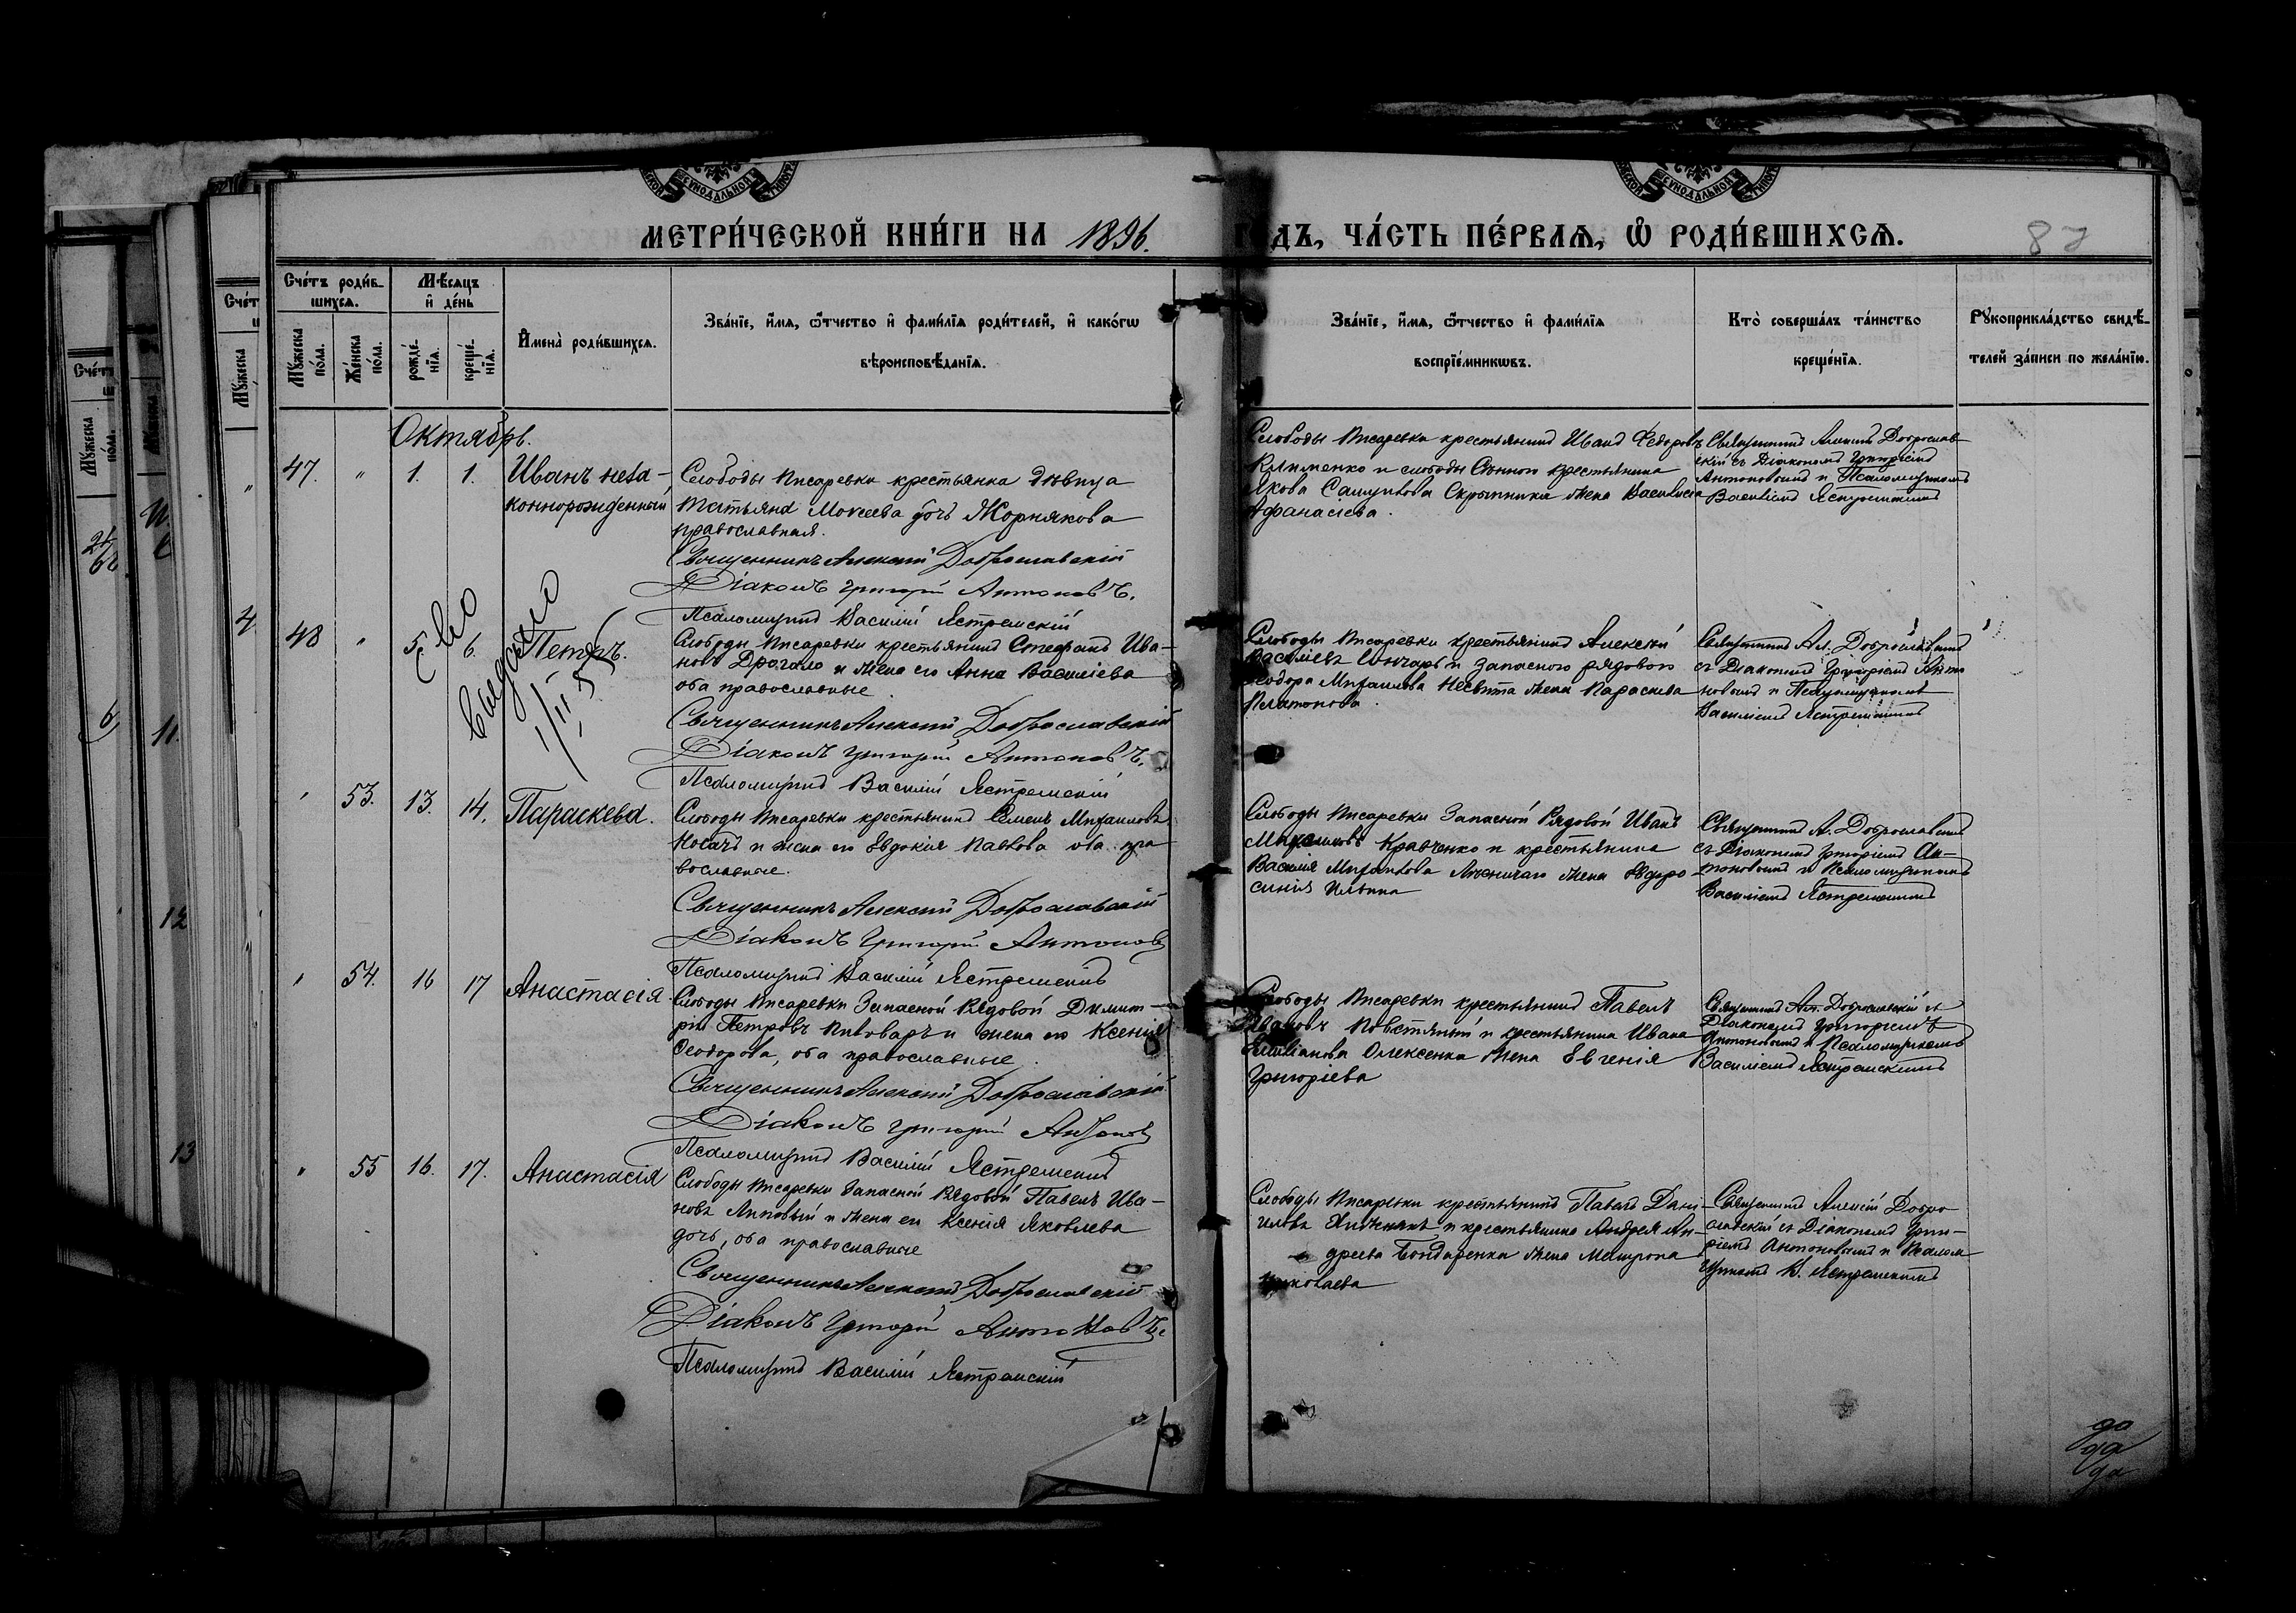 МЕТРИ́ЧЕСКОЙ КНИ́ГИ НА 1896.
ДЪ, ЧА́СТЬ ПЕ́РВАѦ, Ѡ҆ РОДИ́ВШИХСѦ.
87
Сче́тъ роди́в-
шихсѧ.
Мѣ́сяцъ
и҆ де́нь
Мꙋ́жеска
по́ла.
Же́нска
по́ла.
рожде́-
нїѧ.
креще́-
нїѧ.
И҆мена̀ роди́вшихсѧ.
Зва́нїе, и҆́мѧ, ѻ҆́тчество и҆ фами́лїѧ роди́телей, и҆ како́гѡ
вѣроисповѣ́данїѧ.
Зва́нїе, и҆́мѧ, ѻ҆́тчество и҆ фами́лїѧ
воспрїе́мникѡвъ.
Кто̀ соверша́лъ та́инство
креще́нїѧ.
Рꙋкоприкла́дство свидѣ́-
телей за́писи по жела́нїю.
Октябрь.
47. " 1. 1. Иванъ неза-
коннорожденный
Слободы Писаревки крестьянка девица
Татьяна Моисеева дочь Жорнякова
православная.
Священникъ Алексій Доброславскій
Діаконъ Григорій Антоновъ.
Псаломщикъ Василій Ястремскій
Слободы Писаревки крестьянинъ Иванъ Ѳедоровъ
Клименко и слободы крестьянина
Якова Скрыпника жена Василиса
Афанасіева.
Священникъ Алексій Доброслав-
скій съ Діакономъ Григоріемъ
Антоновымъ и Псаломщикомъ
Василіемъ Ястремскимъ
48 " 5. 6. Петръ.
Выдано
1/II 55
Слободы Писаревки крестьянинъ Стефанъ Ива-
новъ Дрогало и жена его Анна Василіева
оба православные
Священникъ Алексій Доброславскій
Діаконъ Григорій Антоновъ.
Псаломщикъ Василій Ястремскій
Слободы Писаревки крестьянинъ Алексій
Василіевъ Гончаръ и запасного рядового
Ѳеодора Михаилова жена Параскева
Платонова.
Священникъ Ал. Доброславскій
съ Діакономъ Григоріемъ Анто
новымъ и Псаломщикомъ
Василіемъ Ястремскимъ
" 53. 13. 14. Параскева.
Слободы Писаревки крестьянинъ Семенъ Михаиловъ
Носачъ и жена его Евдокія Павлова оба пра
вославные.
Священникъ Алексій Доброславскій
Діаконъ Григорій Антоновъ
Псаломщикъ Василій Ястремскій
Слободы Писаревки Запасной Рядовой Иванъ
Михаиловъ Кравченко и крестьянина
Василія Михаилова жена Евдро-
синія Ильина
Священникъ А. Доброславскій
съ Діакономъ Григоріемъ Ан-
тоновымъ и Псаломщикомъ
Василіемъ Ястремскимъ
" 54. 16 17 Анастасія.
Слободы Писаревки Запасной Рядовой Димит-
рій Петровъ Пивоваръ и жена его Ксенія
Ѳеодорова, оба православные.
Священникъ Алексій Доброславскій
Діаконъ Григорій Антоновъ
Псаломщикъ Василій Ястремскій
Слободы Писаревки крестьянинъ Павелъ
Ивановъ Повстяный и крестьянина Ивана
Емиліанова Олексенка жена Евгенія
Григоріева
Священникъ Ал. Доброславскій съ
Діакономъ Григоріемъ
Антоновымъ и Псаломщикомъ
Василіемъ Ястремскимъ
" 55 16. 17. Анастасія
Слободы Писаревки Запасной Рядовой Павелъ Ива-
новъ Липовый и жена его Ксенія Яковлева
дочь, оба православные
Священникъ Алексій Доброславскій
Діаконъ Григорій Антоновъ.
Псаломщикъ Василій Ястремскій
Слободы Писаревки крестьянинъ Павелъ Дани-
иловъ и крестьянина Андрея Ан-
дреева Бондаренка жена Матрона
Николаева
Священникъ Алексій Добро
славскій съ Діакономъ Григо-
ріемъ Антоновымъ и Псалом
щикомъ В. Ястремскимъ
да
да
да